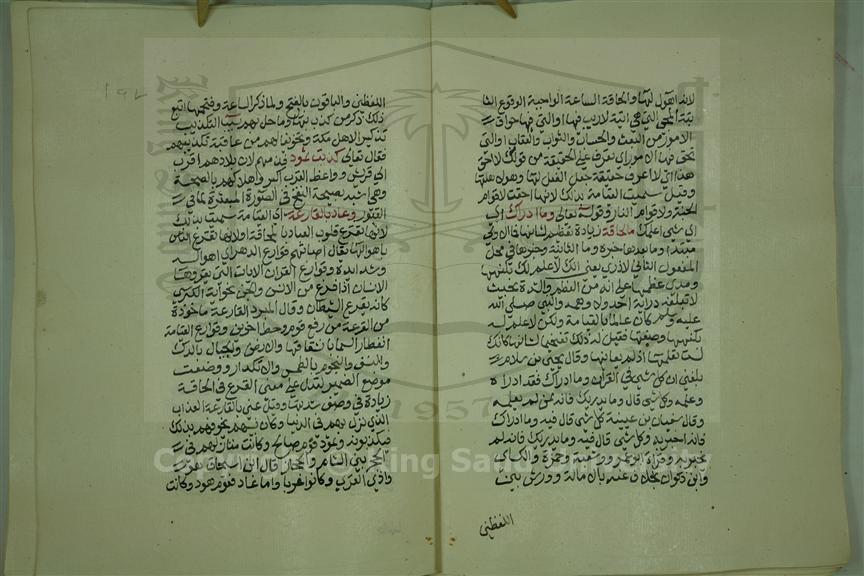 لانه الهول لها والحاقة الساعة الواجبة الوقوع الثا
بتة المجئ التي هي اتية لاريب فيها او التي فيها حواق
الامور من البعث والحساب والثواب والعقاب او التي
تحق فيها الامور اي تعرف على الحقيقة من قولك لا احق
هذا اي لا اعرف حقيقته جعل الفعل لها وهو لاهلها
وقيل سميت القيامة بذلك لانها احقت لاقوام
الجنة ولاقوام النار وقوله تعالى وما ادراك اي
اي شئ اعلمك ما الحاقة زيادة تعظيم لشانها فما الاولى
مبتدا وما بعدها خبره وما الثانية وخبرها في محل
المفعول الثاني لادري يعني انك لا علم لك بكنهها
ومدى عظمها على انه من العظم والشدة بحيث
لا تبلغه دراية احد ولا وهمه والنبي صلى الله
عليه وسلم كان عالما بالقيامة ولكن لا علم له
بكنهها وصفتها فقيل له ذلك تفخيما لشانها كانك
لست تعلمها اذ لم تعاينها وقال يحيى بن سلام
بلغني ان كل شئ في القران وما ادراك فقد ادراه
وعلمه وكل شئ قال وما يدريك فانه ممن لم يعلمه
وقال سفيان بن عيينة كل شئ قال فيه وما ادراك
فانه اخبر به وكل شئ قال فيه وما يدريك فانه لم
يخبر به وقراه ابو عمرو وشعبة وحمزة والكساي
وابن ذكوان بخلاف عنه بالامالة وورش بين
اللفظين
اللفظين والباقون بالفتح ولما ذكر الساعة وفخمها اتبع
ذلك ذكر من كذب بها وما حل بهم بسبب التكذيب
تذكيرا لاهل مكة وتخويفا لهم من عاقبة تكذيبهم
فقال تعالى كذبت ثمود قدمهم لان بلادهم اقرب
الى قريش وواعظ القرب اكبر واهلاكهم بالصيحة
وهي اشبه بصيحة النفخ في الصور المبعثرة لما في
القبور وعاد بالقارعة اي القيامة سميت بذلك
لانها تقرع قلوب العباد بالمخافة ولانها تقرع الناس
باهوالها يقال اصابتهم قوارع الدهر اي اهواله
وشدايده وقوارع القران الايات التي يقرؤها
الانسان اذا فزع من الانس والجن نحو اية الكرسي
كانه يقرع الشيطان وقال المبرد القارعة ماخوذة
من القرعة من رفع قوم وحط اخرين وقوارع القيامة
انفطار السما وانشقاقها والارض والجبال بالدك
والنسف والنجوم بالطمس والانكدار ووضعت
موضع الضمير لتدل على معنى القرع في الحاقة
زيادة في وصف شدتها وقيل عنى بالقارعة العذاب
الذي نزل بهم في الدنيا وكان نبيهم يخوفهم بذلك
فيكذبونه وثمود قوم صالح وكانت منازلهم في
الحجر بين الشام والحجاز قال ابن اسحاق هو
وادي القرى وكانوا عربا واما عاد فقوم هود وكانت
Copyright © King Saud University
1957